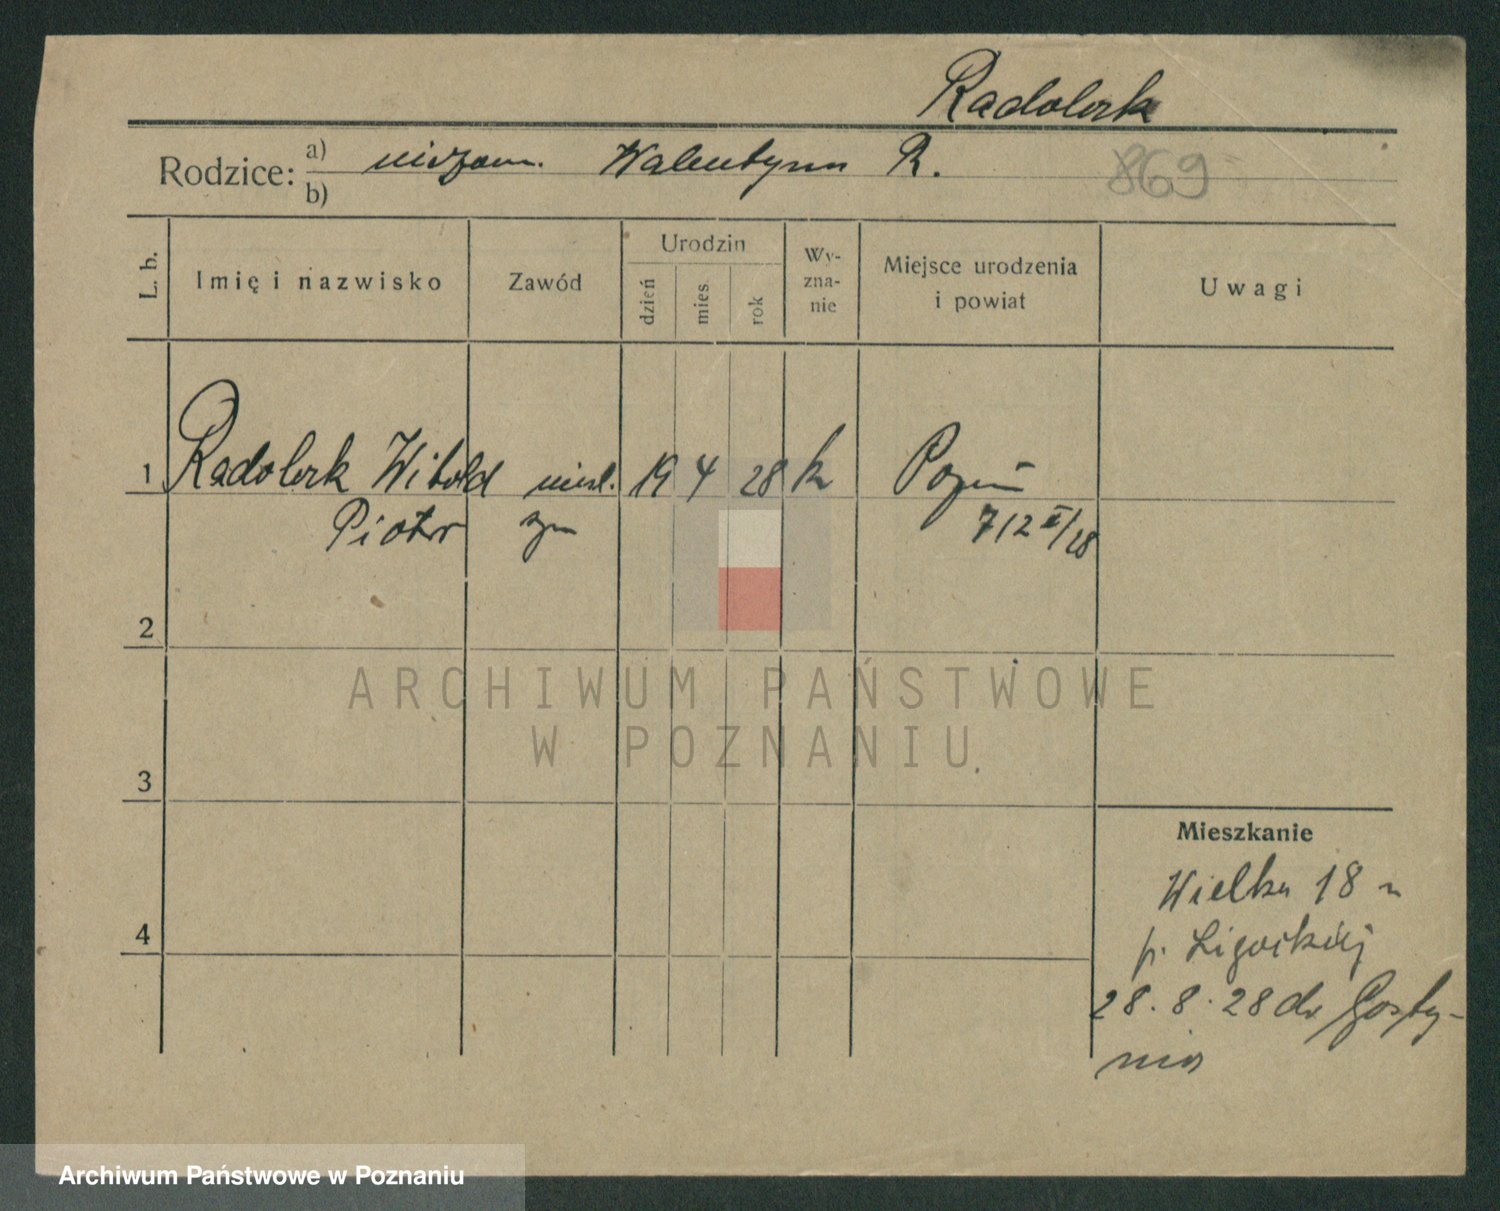 Radolczk
Rodzice: a) niezam. Walentyna R. 869
b)
L. b. Imię i nazwisko Zawód Urodzin dzień mies rok Wy-zna-nie Miejsce urodzenia i powiat Uwagi
1 Radolczk Witold 19 4 28 k Pozn
Piotr syn 712 /28
2
ARCHIWUM PAŃSTWOWE
W POZNANIU
3
Mieszkanie
Wielka 18 u
4 p. Ligockiej
28.8.28 do Gosty-
nia
Archiwum Państwowe w Poznaniu